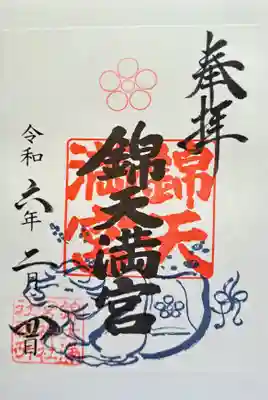 奉拝
錦天満宮
錦天
満宮
令和六年二月四日